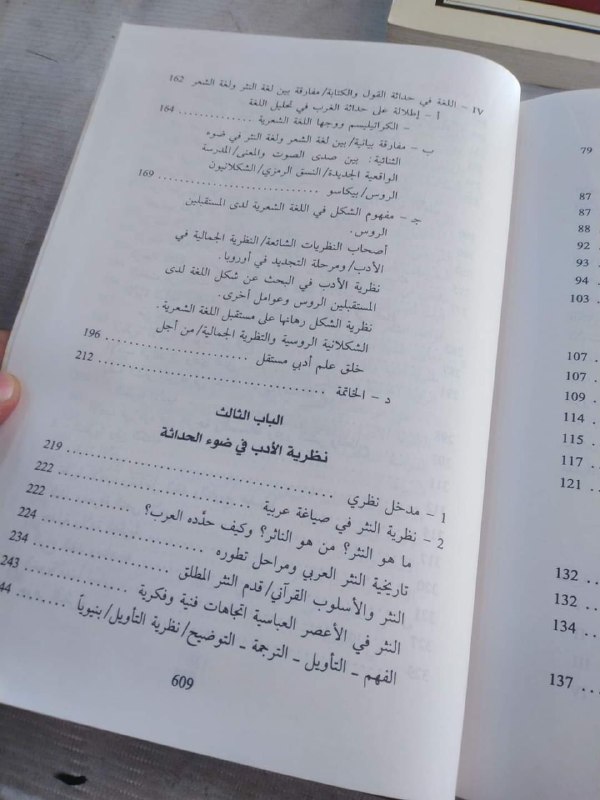 IV - اللغة في حداثة القول والكتابة/مفارقة بين لغة النثر ولغة الشعر 162
أ - إطلالة على حداثة الغرب في تحليل اللغة
- الكراتيليسم ووجها اللغة الشعرية .............. 164
ب - مفارقة بيانية/بين لغة الشعر ولغة النثر في ضوء
الثنائية: بين صدى الصوت والمعنى/المدرسة
الواقعية الجديدة/النسق الرمزي/الشكلانيون
الروس/بيكاسو .............. 169
جـ - مفهوم الشكل في اللغة الشعرية لدى المستقبلين
الروس.
أصحاب النظريات الشائعة/النظرية الجمالية في
الأدب/ومرحلة التجديد في أوروبا.
نظرية الأدب في البحث عن شكل اللغة لدى
المستقبلين الروس وعوامل أخرى.
نظرية الشكل رهانها على مستقبل اللغة الشعرية.
الشكلانية الروسية والنظرية الجمالية/من أجل
خلق علم أدبي مستقل .............. 196
د - الخاتمة .............. 212
الباب الثالث
نظرية الأدب في ضوء الحداثة
1 - مدخل نظري .............. 219
2 - نظرية النثر في صياغة عربية .............. 222
ما هو النثر؟ من هو الناثر؟ وكيف حدّده العرب؟ 222
تاريخية النثر العربي ومراحل تطوره .............. 224
النثر والأسلوب القرآني/قدم النثر المطلق .............. 234
النثر في الأعصر العباسية اتجاهات فنية وفكرية .............. 243
الفهم - التأويل - الترجمة - التوضيح/نظرية التأويل/بنيوياً .............. 44
609
79
87
87
88
92
93
94
103
107
107
109
114
115
117
121
132
132
134
137